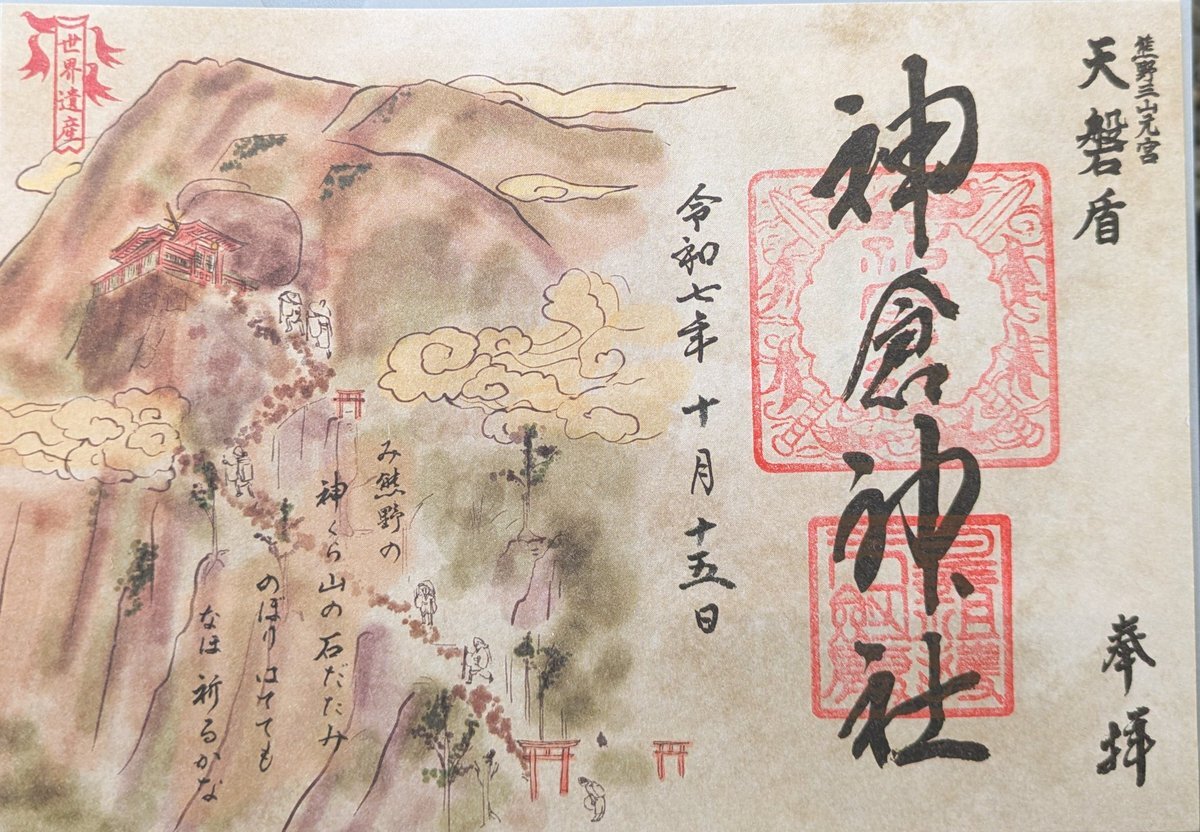 熊野三山元宮
天磐盾
奉拝
神倉神社
令和七年 十月十五日
み熊野の
神くら山の石だたみ
のぼりはてても
なほ祈るかな
世界遺産